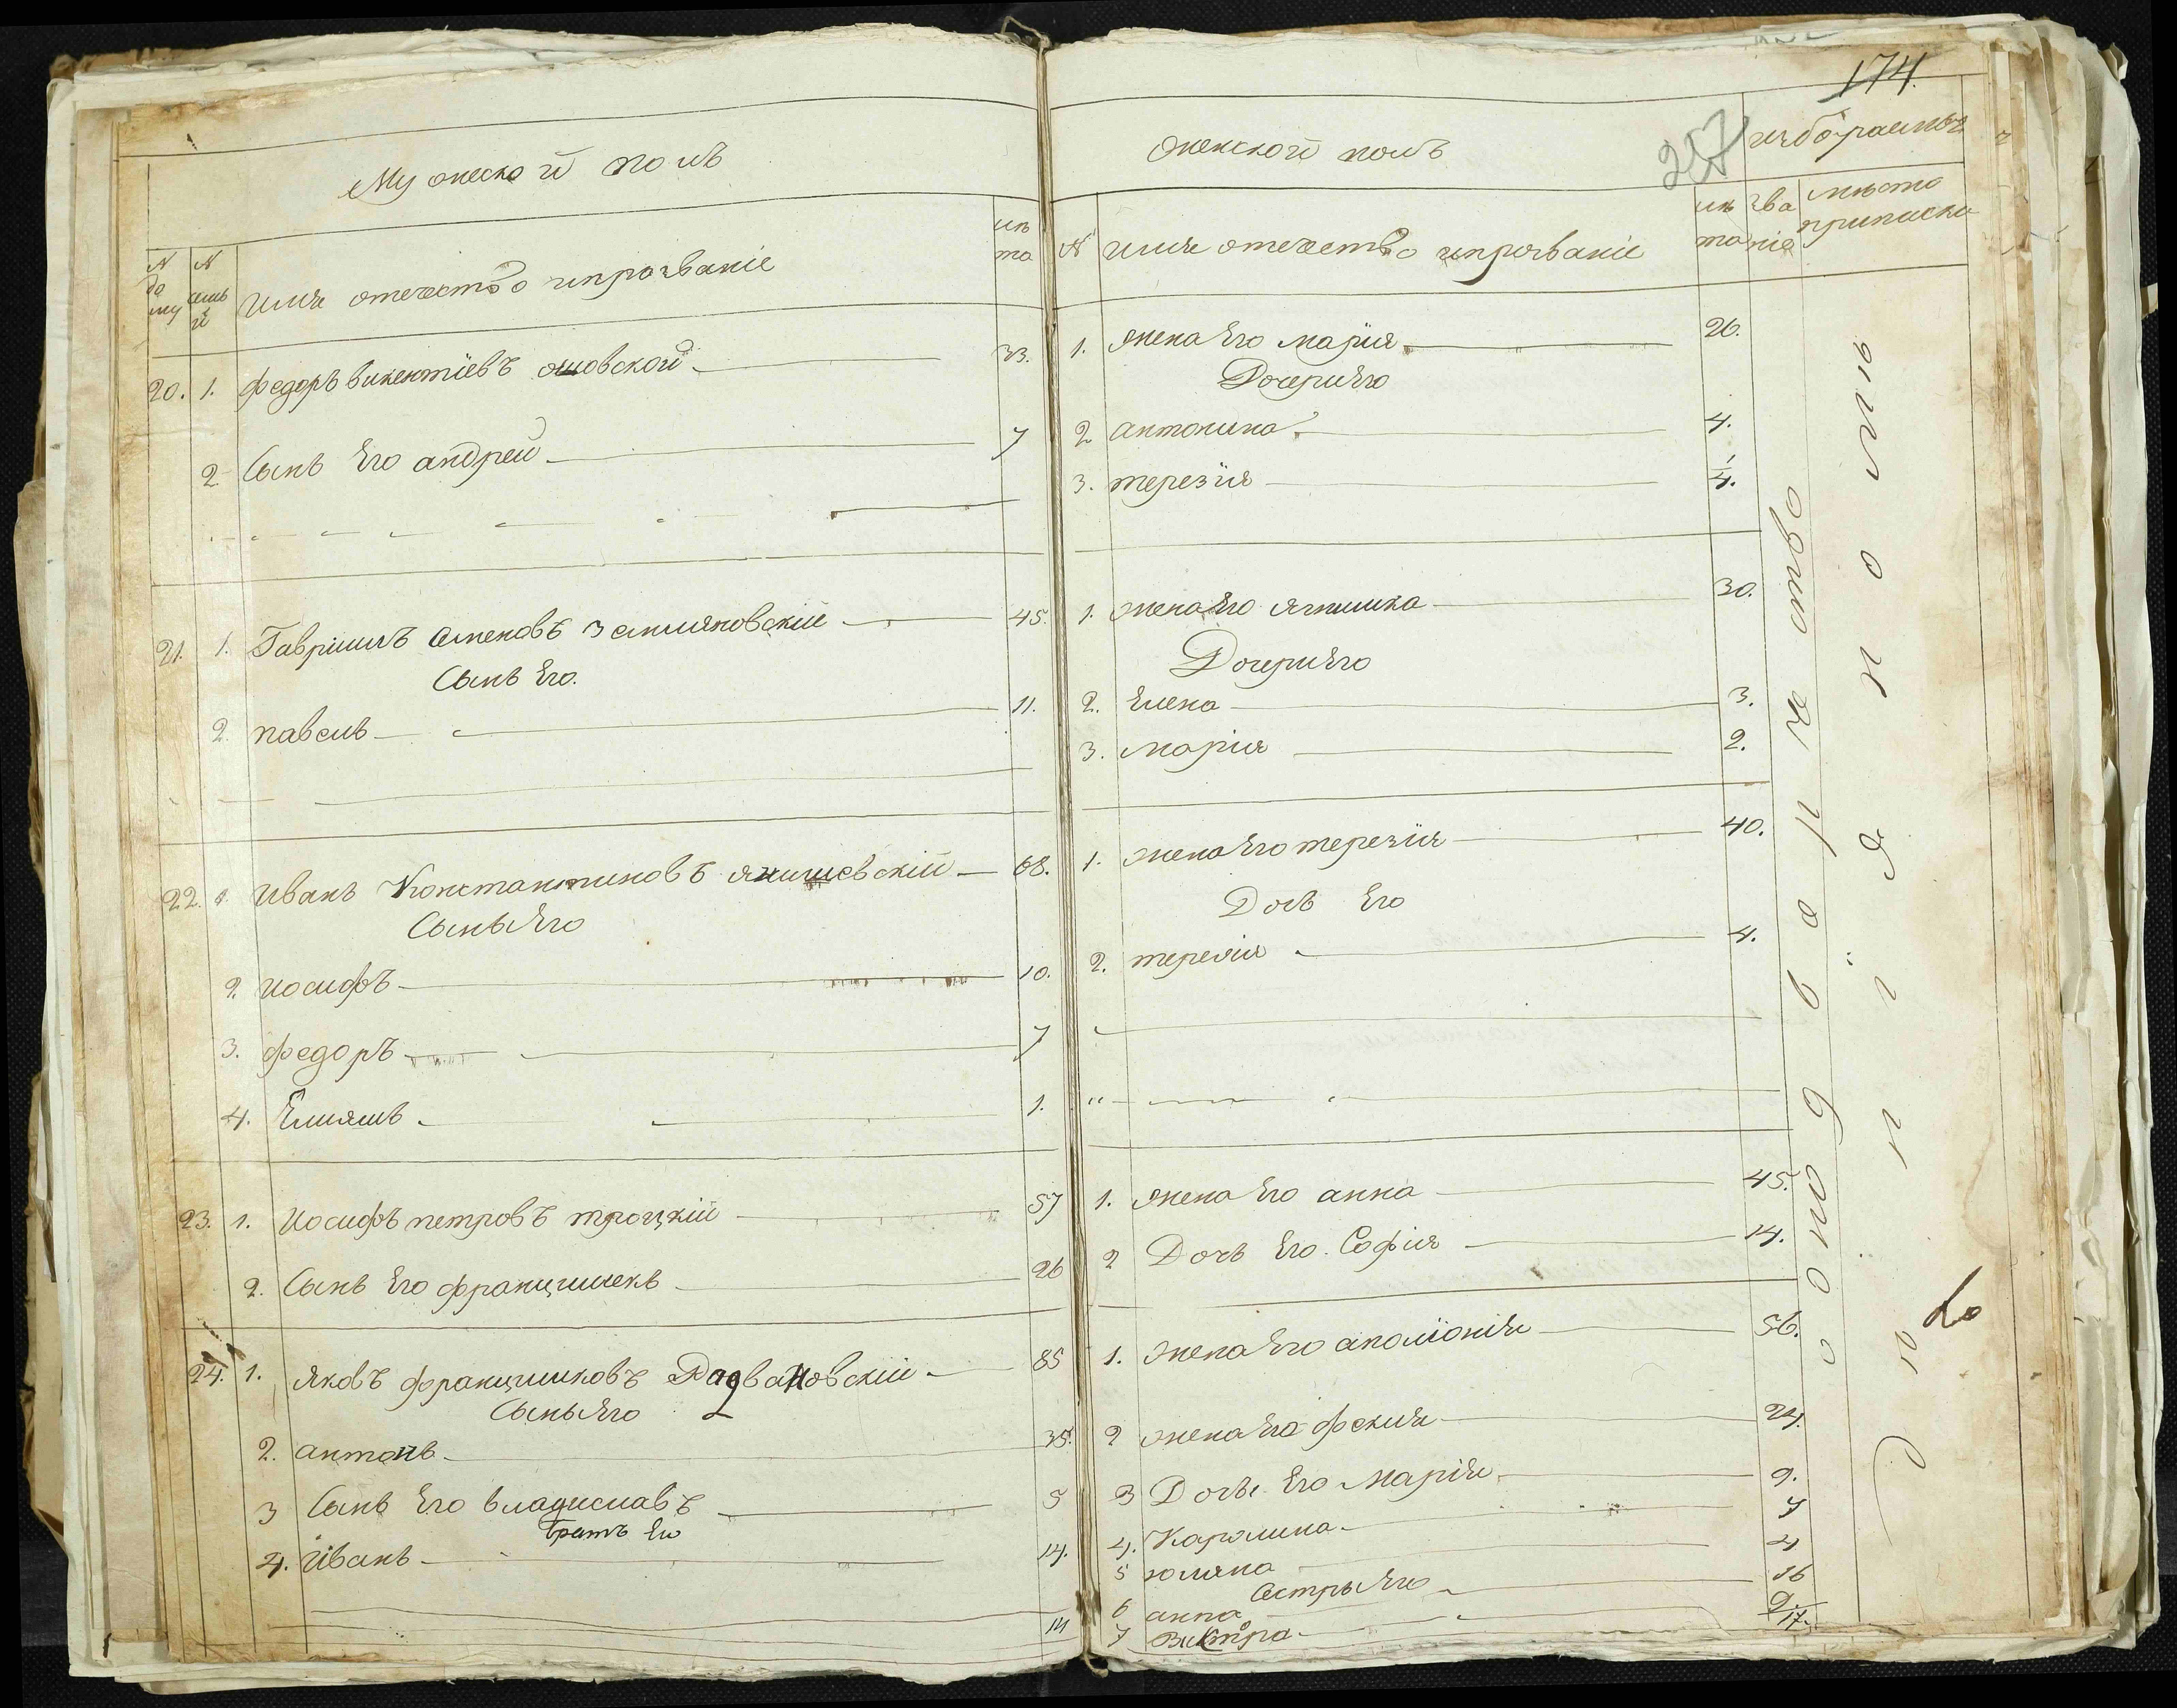 Мужеской полъ
N
до
му
N
семь
й
имя отечество ипрозваніе
лѣ
та
20. 1. федоръ викентіевъ 33.
2 Сынъ Его андрей 7
21. 1. Гавріилъ Семеновъ 45.
Сынъ Его.
2. павелъ 11.
22. 1. Иванъ Константиновъ янишевскій 68.
Сынъ Его
2. Иосифъ 10.
3. федоръ 7
4. Елияшъ 1.
23. 1. Иосифъ петровъ троцкій 57
2. Сынъ Его францишекъ 26
24. 1. Яковъ францишковъ Радвановскій 85
Сынъ Его
2. антонъ 35.
3 Сынъ Его владиславъ 5
братъ Его
4. Иванъ 14.
14
174.
257
Женской полъ
N имя отечество ипрозваніе
лѣ
та
зва
ніе
мѣсто
приписки
1. жена Его марія 26.
Дочери Его
2 антонина 4.
3. терезія 1/4.
1. жена Его 30.
Дочери Его
2. Елена 3.
3. марія 2.
1. жена Его терезія 40.
Дочь Его
2. терезія 4.
1. жена Его анна 45.
2 Дочь Его Софія 14.
1. жена Его аполіонія 56.
2 жена Его фекля 24.
3 Дочь Его Марія 9.
4. Каролина 7
5 юляна 4
Сестры Его
6 анна 16
7 Виктора 9
17.
дворянство